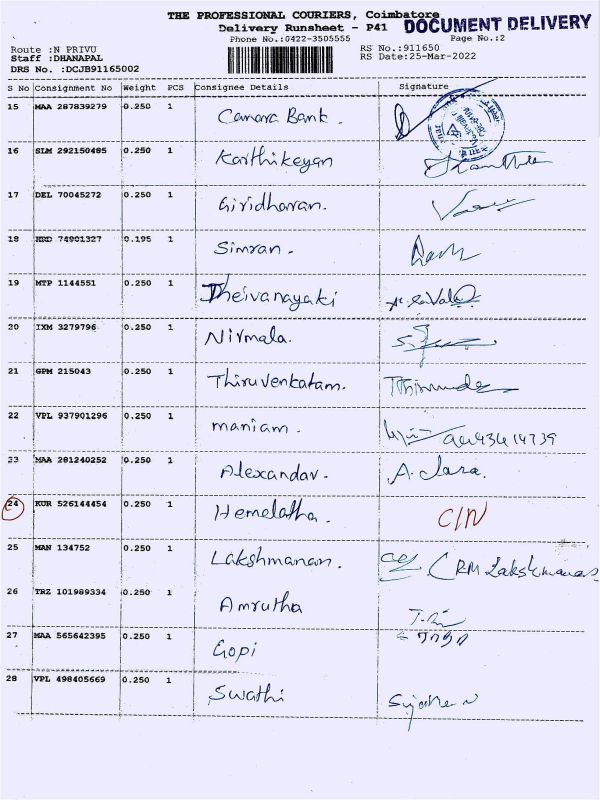 THE PROFESSIONAL COURIERS, Coimbatore
DOCUMENT DELIVERY
Delivery Runsheet - P41
Phone No.:0422-3505555
Page No.:2
Route :N PRIVU
RS No.:911650
Staff :DHANAPAL
RS Date:25-Mar-2022
DRS No. :DCJB91165002
S No Consignment No Weight PCS Consignee Details Signature
15 MAA 287839279 0.250 1 Canara Bank.
16 SLM 292150485 0.250 1 Karthikeyan
17 DEL 70045272 0.250 1 Giridharan.
18 HRD 74901327 0.195 1 Simran.
19 MTP 1144551 0.250 1 Theivanayaki
20 IXM 3279796 0.250 1 Nirmala.
21 GPM 215043 0.250 1 Thiruvenkatam.
22 VPL 937901296 0.250 1 maniam.
23 MAA 281240252 0.250 1 Alexandar. A. Jara.
24 KUR 526144454 0.250 1 Hemelatha. C/N
25 MAN 134752 0.250 1 Lakshmanan. (RM Lakshmanan
26 TRZ 101989334 0.250 1 Amrutha
27 MAA 565642395 0.250 1 Gopi
28 VPL 498405669 0.250 1 Swathi